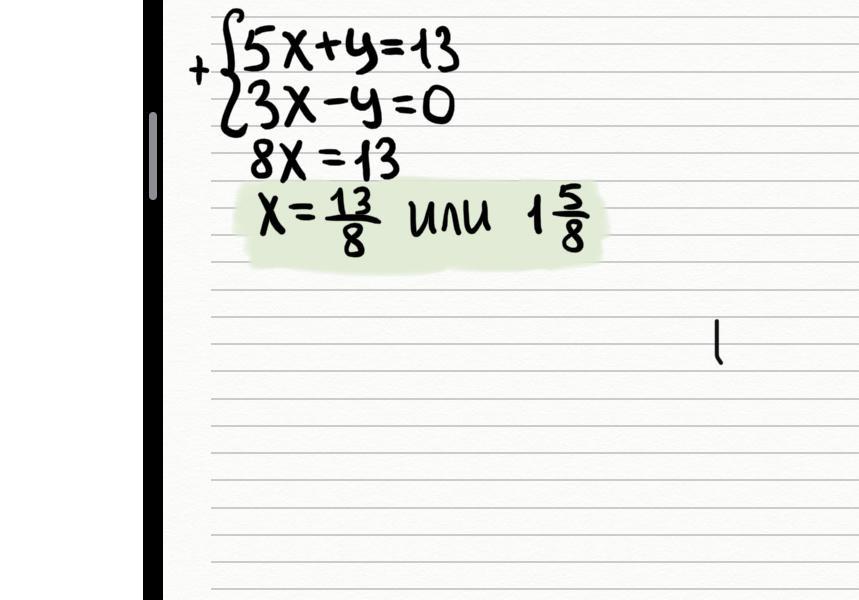 + { 5x+y=13
3x-y=0
8x=13
x=13/8 или 1 5/8